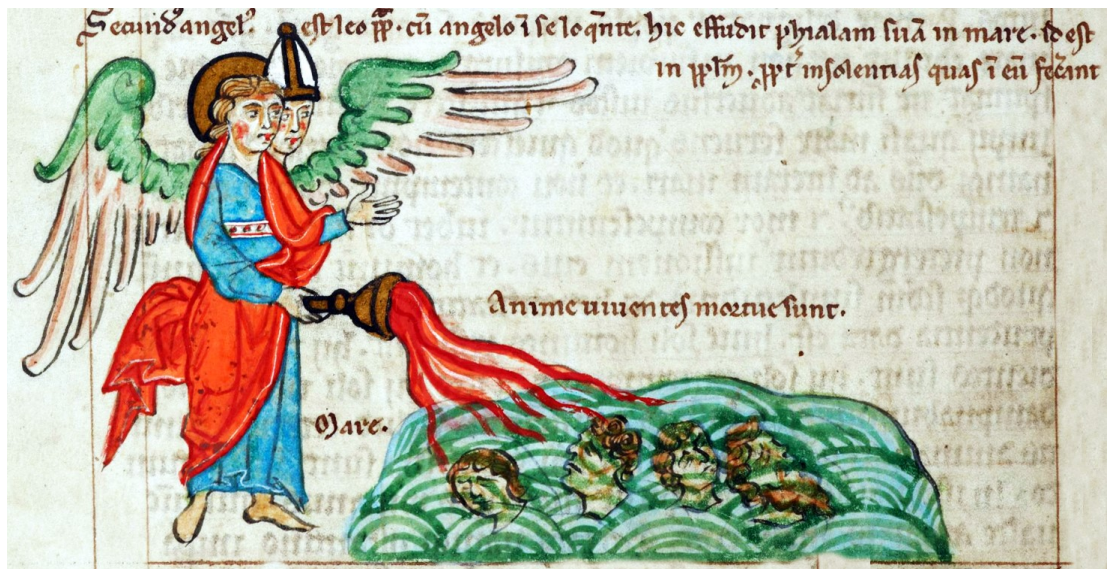 Secund᷒ angel᷒ est leo p̄p̄. cū angelo ī se loq̄nte. hic effudit phialam suā in mare. id est
in pp̄lm̄. pp̄t᷑ insolentias quas ī eū fec̄ant
Anime uiuentes mortue sunt.
Mare.